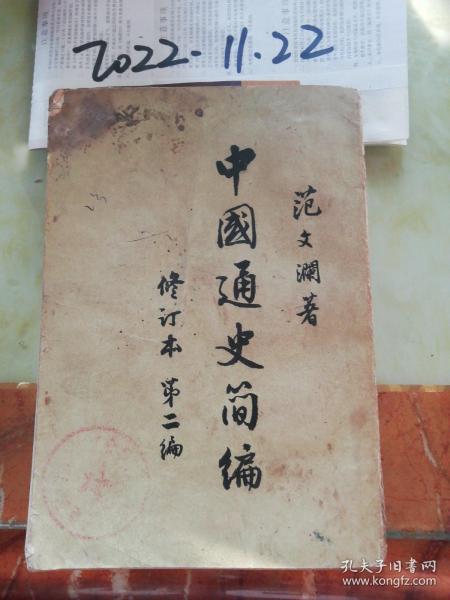 2022.11.22
范文瀾著
中國通史简編
修订本 第二編
孔夫子旧书网
www.kongfz.com